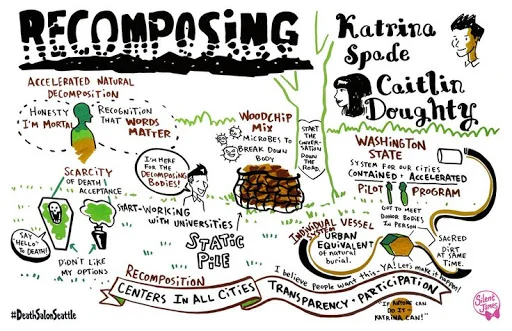 RECOMPOSING
Katrina
Spade
Caitlin
Doughty
ACCELERATED NATURAL
DECOMPOSITION
HONESTY
I'M MORTAL
RECOGNITION
THAT WORDS
MATTER
SCARCITY
OF DEATH
ACCEPTANCE
SAY
"HELLO"
TO DEATH!
DIDN'T LIKE
MY OPTIONS
I'M HERE
FOR THE
DECOMPOSING
BODIES!
START-WORKING
WITH UNIVERSITIES
WOODCHIP
MIX
MICROBES TO
BREAK DOWN
BODY
STATIC
PILE
START
THE
CONVER-
SATION
DOWN
THE ROAD.
WASHINGTON
STATE
SYSTEM FOR OUR CITIES
CONTAINED + ACCELERATED
PILOT PROGRAM
GOT TO MEET
DONOR BODIES
IN PERSON
SACRED
+
DIRT AT
SAME
TIME.
INDIVIDUAL VESSEL
SYSTEM
URBAN
EQUIVALENT
of natural
burial.
RECOMPOSITION
CENTERS IN ALL CITIES
I believe people want this. YA! Let's make it happen!
TRANSPARENCY + PARTICIPATION
"IF ANYONE CAN
DO IT -
KATRINA CAN!"
#DeathSalonSeattle
Silent
James